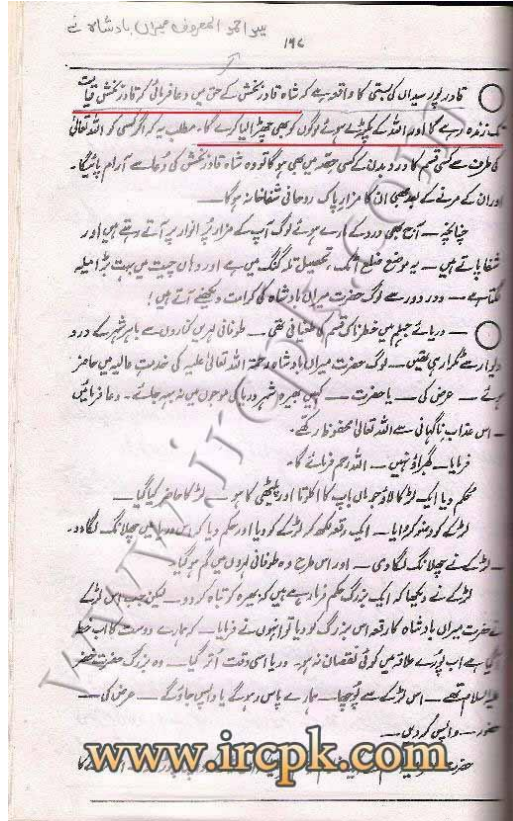 سید احمد المعروف میراں بادشاہ نے
۱۹۷
قادر پور سیداں کی بستی کا واقعہ ہے کہ شاہ قادر بخش کے حق میں دعا فرمائی کہ قادر بخش قیامت
تک زندہ رہے گا اور اللہ کے پکڑے ہوئے لوگوں کو بھی چھڑا لیا کرے گا۔ مطلب یہ کہ اگر کسی کو اللہ تعالیٰ
کی طرف سے کسی قسم کا درد بدن کے کسی حصہ میں بھی ہو گا تو وہ شاہ قادر بخش کی دعا سے آرام پائیگا۔
اور ان کے مرنے کے بعد بھی ان کا مزار پاک روحانی شفاخانہ ہو گا۔
چنانچہ — آج بھی درد کے مارے ہوئے لوگ آپ کے مزار پر انوار پر آتے رہتے ہیں اور
شفا پاتے ہیں — یہ موضع ضلع اٹک، تحصیل تلہ گنگ میں ہے اور وہاں چیت میں بہت بڑا میلہ
لگتا ہے — دور دور سے لوگ حضرت میراں بادشاہ کی کرامت دیکھنے آتے ہیں!
— دریائے جہلم میں خطرناک قسم کی طغیانی تھی — طوفانی لہریں کناروں سے باہر شہر کے در و
دیوار سے ٹکرا رہی تھیں — لوگ حضرت میراں بادشاہ رحمۃ اللہ تعالیٰ علیہ کی خدمت عالیہ میں حاضر
ہوئے — عرض کی — یا حضرت — کہیں بھیرہ شہر دریا کی موجوں میں نہ بہہ جائے۔ دعا فرمائیں
— اس عذاب ناگہانی سے اللہ تعالیٰ محفوظ رکھے۔
فرمایا — گھبراؤ نہیں — اللہ رحم فرمائے گا۔
حکم دیا ایک لڑکا لاؤ جو ماں باپ کا اکلوتا اور پلیٹھی کا ہو — لڑکا حاضر کیا گیا —
لڑکے کو وضو کروایا — ایک رقعہ لکھ کر لڑکے کو دیا اور حکم دیا کہ اس دریا میں چھلانگ لگا دو۔
— لڑکے نے چھلانگ لگا دی — اور اس طرح وہ طوفانی لہروں میں گم ہو گیا۔
لڑکے نے دیکھا کہ ایک بزرگ حکم فرما رہے ہیں کہ بھیرہ کو تباہ کر دو — لیکن جب اس لڑکے
نے حضرت میراں بادشاہ کا رقعہ اس بزرگ کو دیا تو انہوں نے فرمایا — کہ ہمارے دوست کا اب خط
آ گیا ہے اب پورے علاقہ میں کوئی نقصان نہ ہو۔ دریا اسی وقت اتر گیا — وہ بزرگ حضرت خضر
علیہ السلام تھے — اس لڑکے سے پوچھا — ہمارے پاس رہو گے یا واپس جاؤ گے — عرض کی —
حضور — واپس کر دیں —
www.ircpk.com